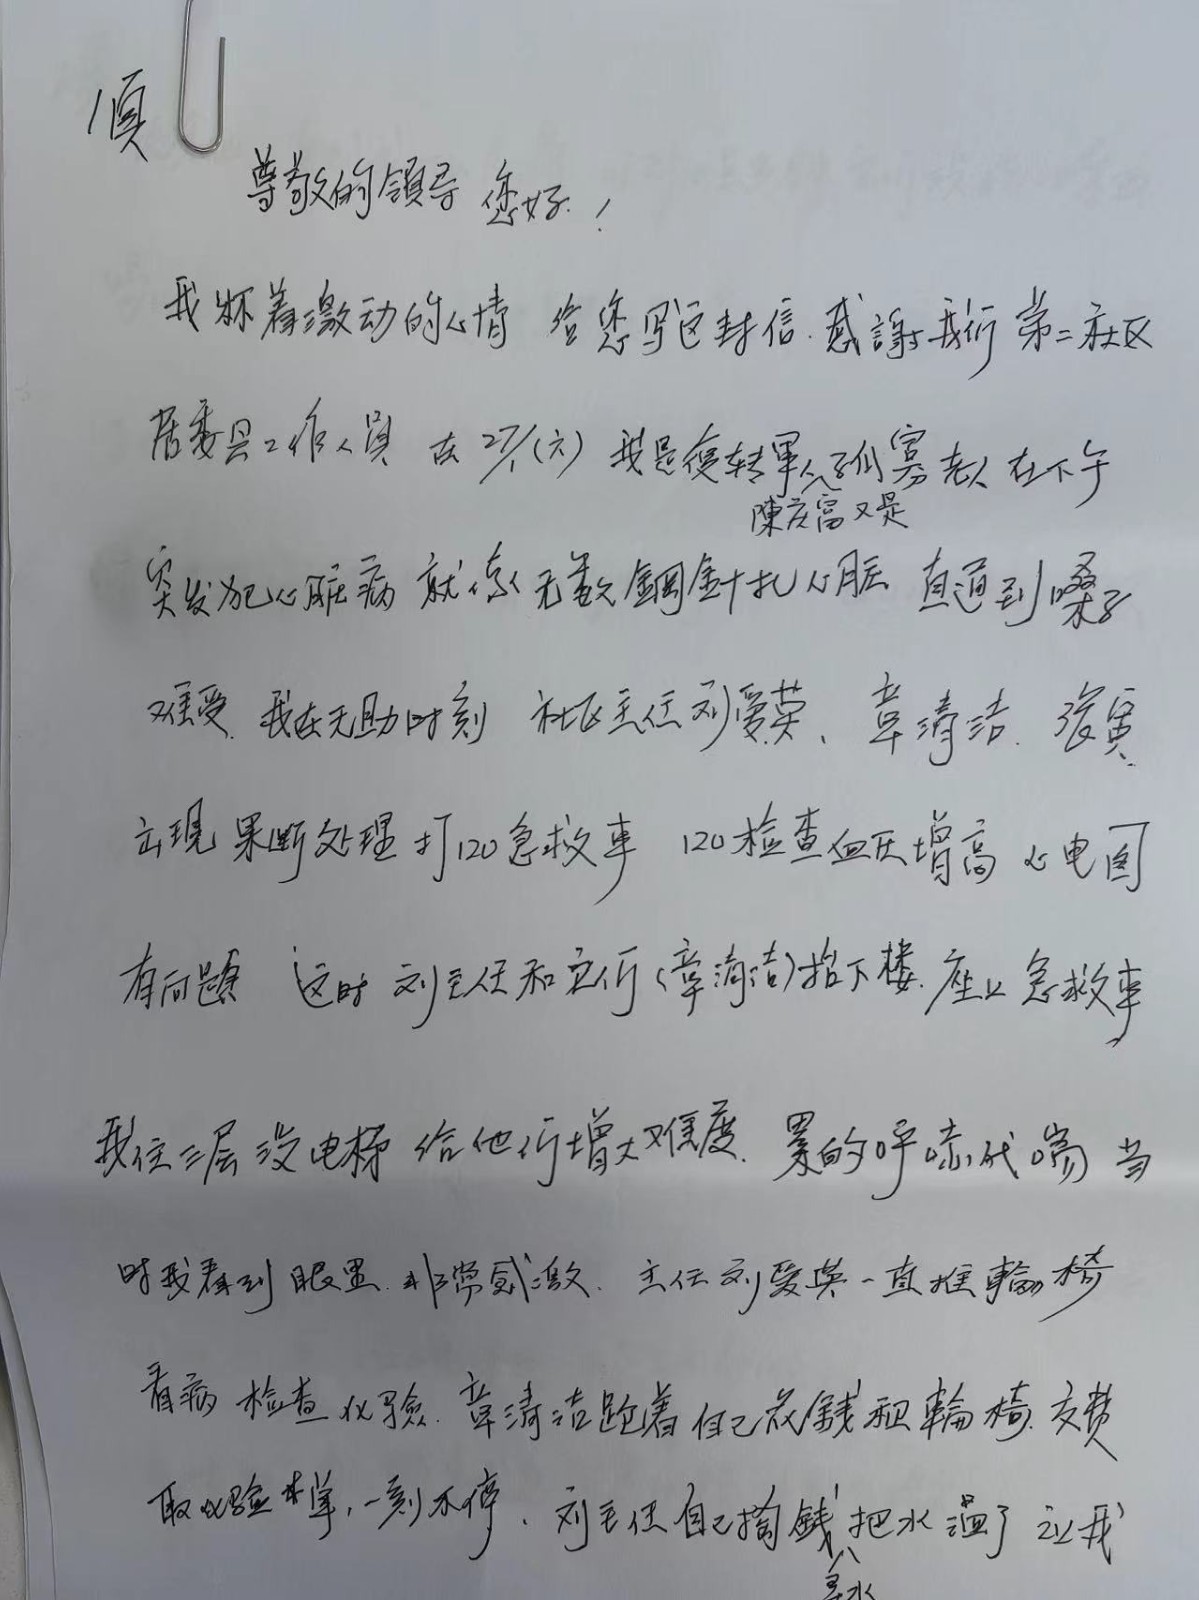 1頁
尊敬的領导 您好!
我怀着激动的心情 给您写这封信.感謝我们第二社区
居委会工作人員 在27/1(六) 我是復转軍人孤寡老人 在下午
陳庆富又是
突发犯心脏病 就像无数鋼針扎心脏 直通到嗓子
难受.我在无助时刻 社区主任刘爱英、章清洁.張寅.
出現果断处理 打120急救車 120检查血压增高 心电图
有问题 这时 刘主任和它们(章清洁)抬下楼.座上急救車
我住三层没电梯 给他们增大难度.累的呼哧代喘 当
时我看到眼里.非常感激.主任刘爱英一直推輪椅
看病 检查 化驗.章清洁跑着自己花錢租輪椅.交費
取化验单,一刻不停.刘主任自己掏錢把水温了 让我
买水